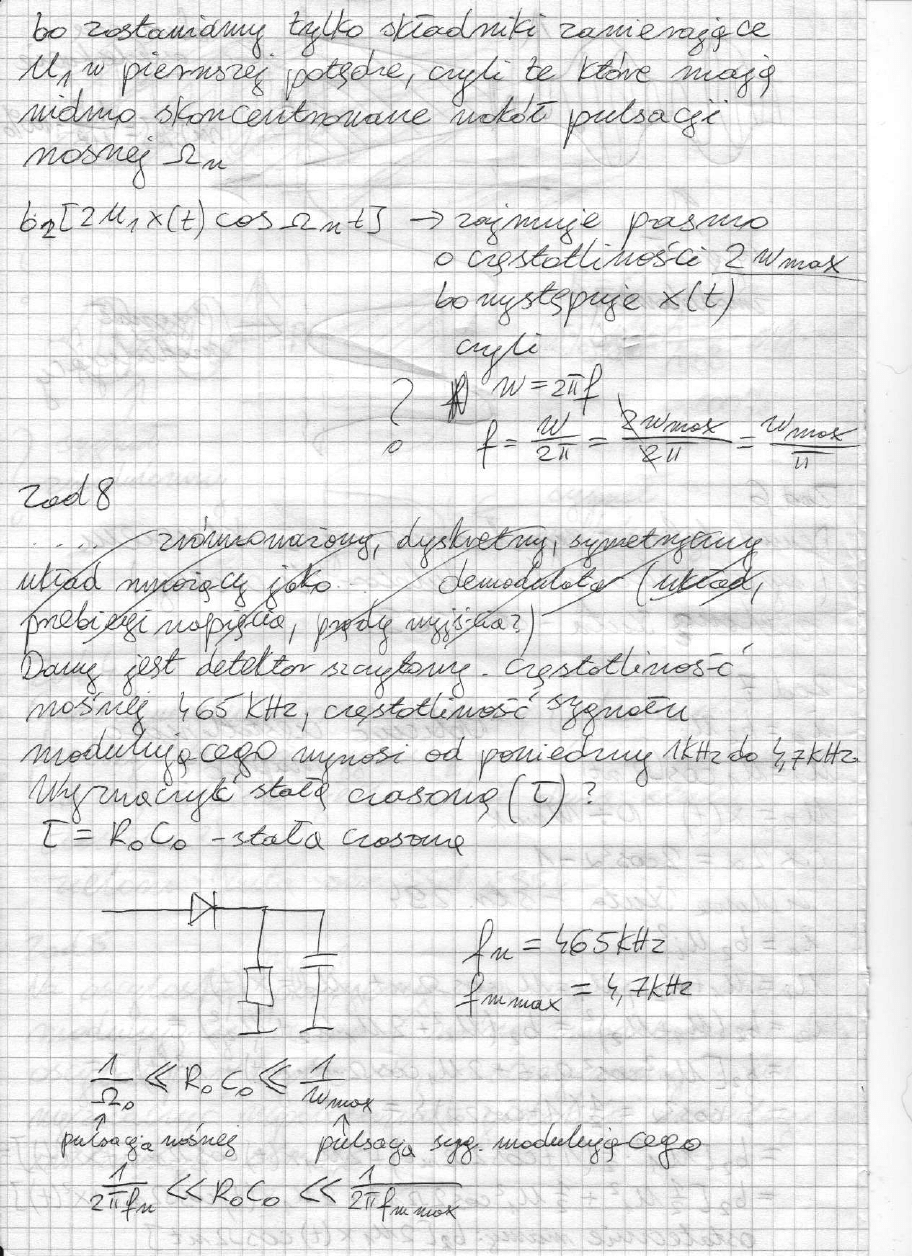 bo zostawiamy tylko składniki zawierające
U₁ w pierwszej potędze, czyli te które mają
widmo skoncentrowane wokół pulsacji
nośnej Ωₙ
b₂[2U₁x(t) cos Ωₙt] → zajmuje pasmo
o częstotliwości 2 wmax
bo występuje x(t)
czyli
? w = 2πf
f = w/2π = 2wmax/2π = wmax/π
zad 8
..... zrównoważony, dyskretny, symetryczny
układ mnożący jako ... demodulator (układ,
przebiegi napięcia, prądy wyjścia?)
Dany jest detektor szczytowy. Częstotliwość
nośnej 465 kHz, częstotliwość sygnału
modulującego wynosi od powiedzmy 1kHz do 4,7kHz.
Wyznaczyć stałą czasową (τ)?
τ = R₀C₀ - stała czasowa
fₙ = 465kHz
fm max = 4,7kHz
1/Ω₀ ≪ R₀C₀ ≪ 1/wmax
pulsacja nośnej pulsacja syg. modulującego
1/2πfₙ << R₀C₀ << 1/2πfm max